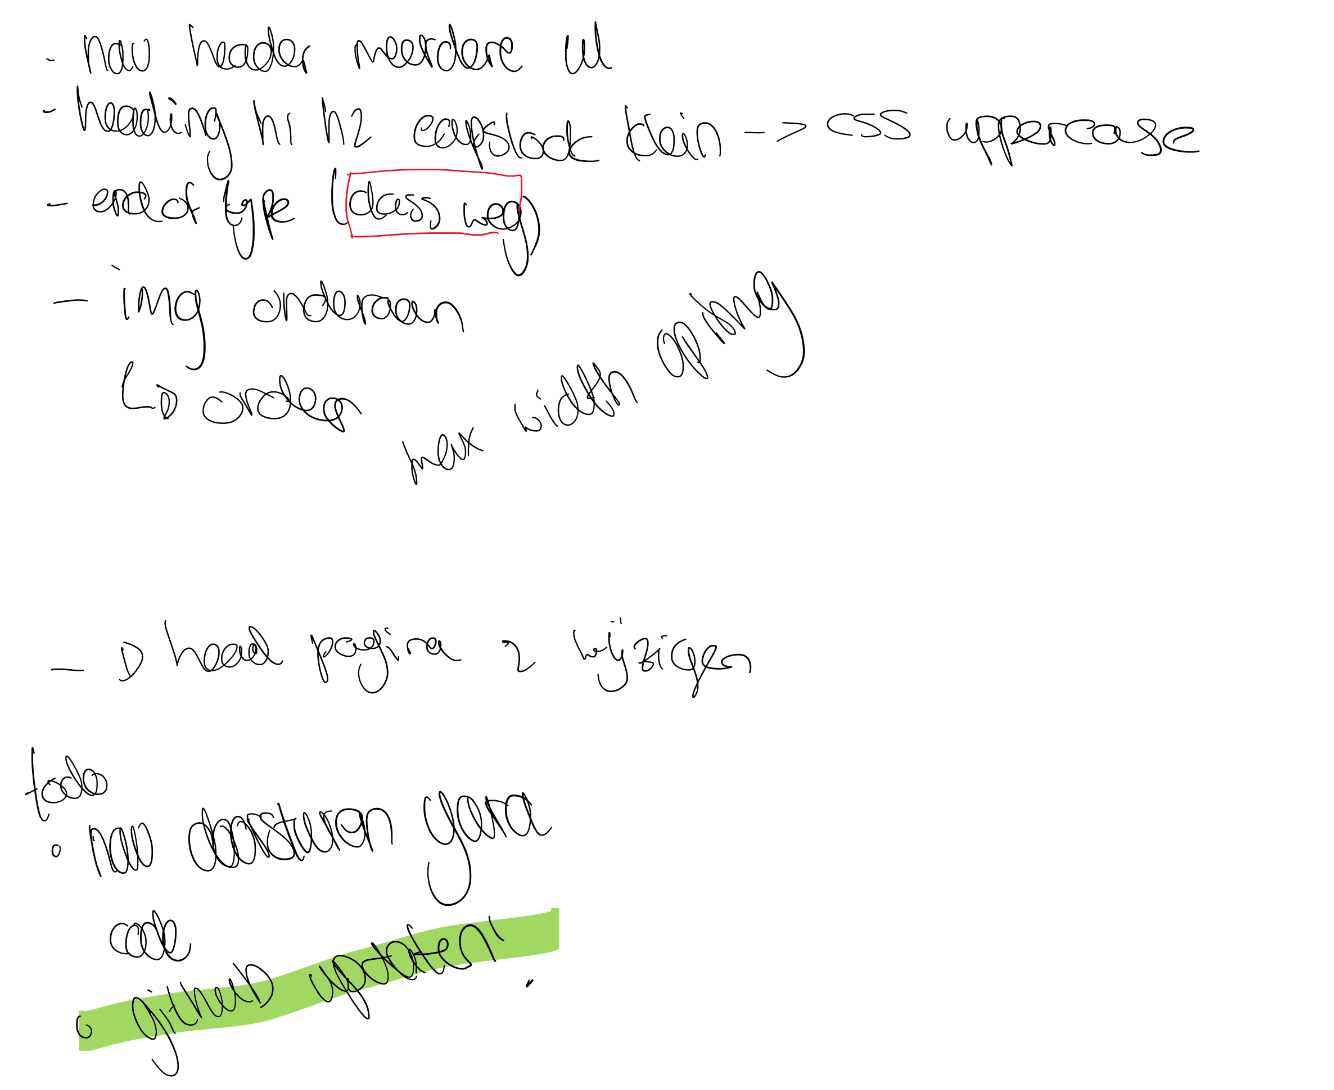 - nav header meerdere ul
- heading h1 h2 capslock klein -> css uppercase
- end of type (class weg)
- img onderaan
↳ order
max width op img
- D head pagina 2 wijzigen
todo
• nav doorsturen yara
code
• github updaten!